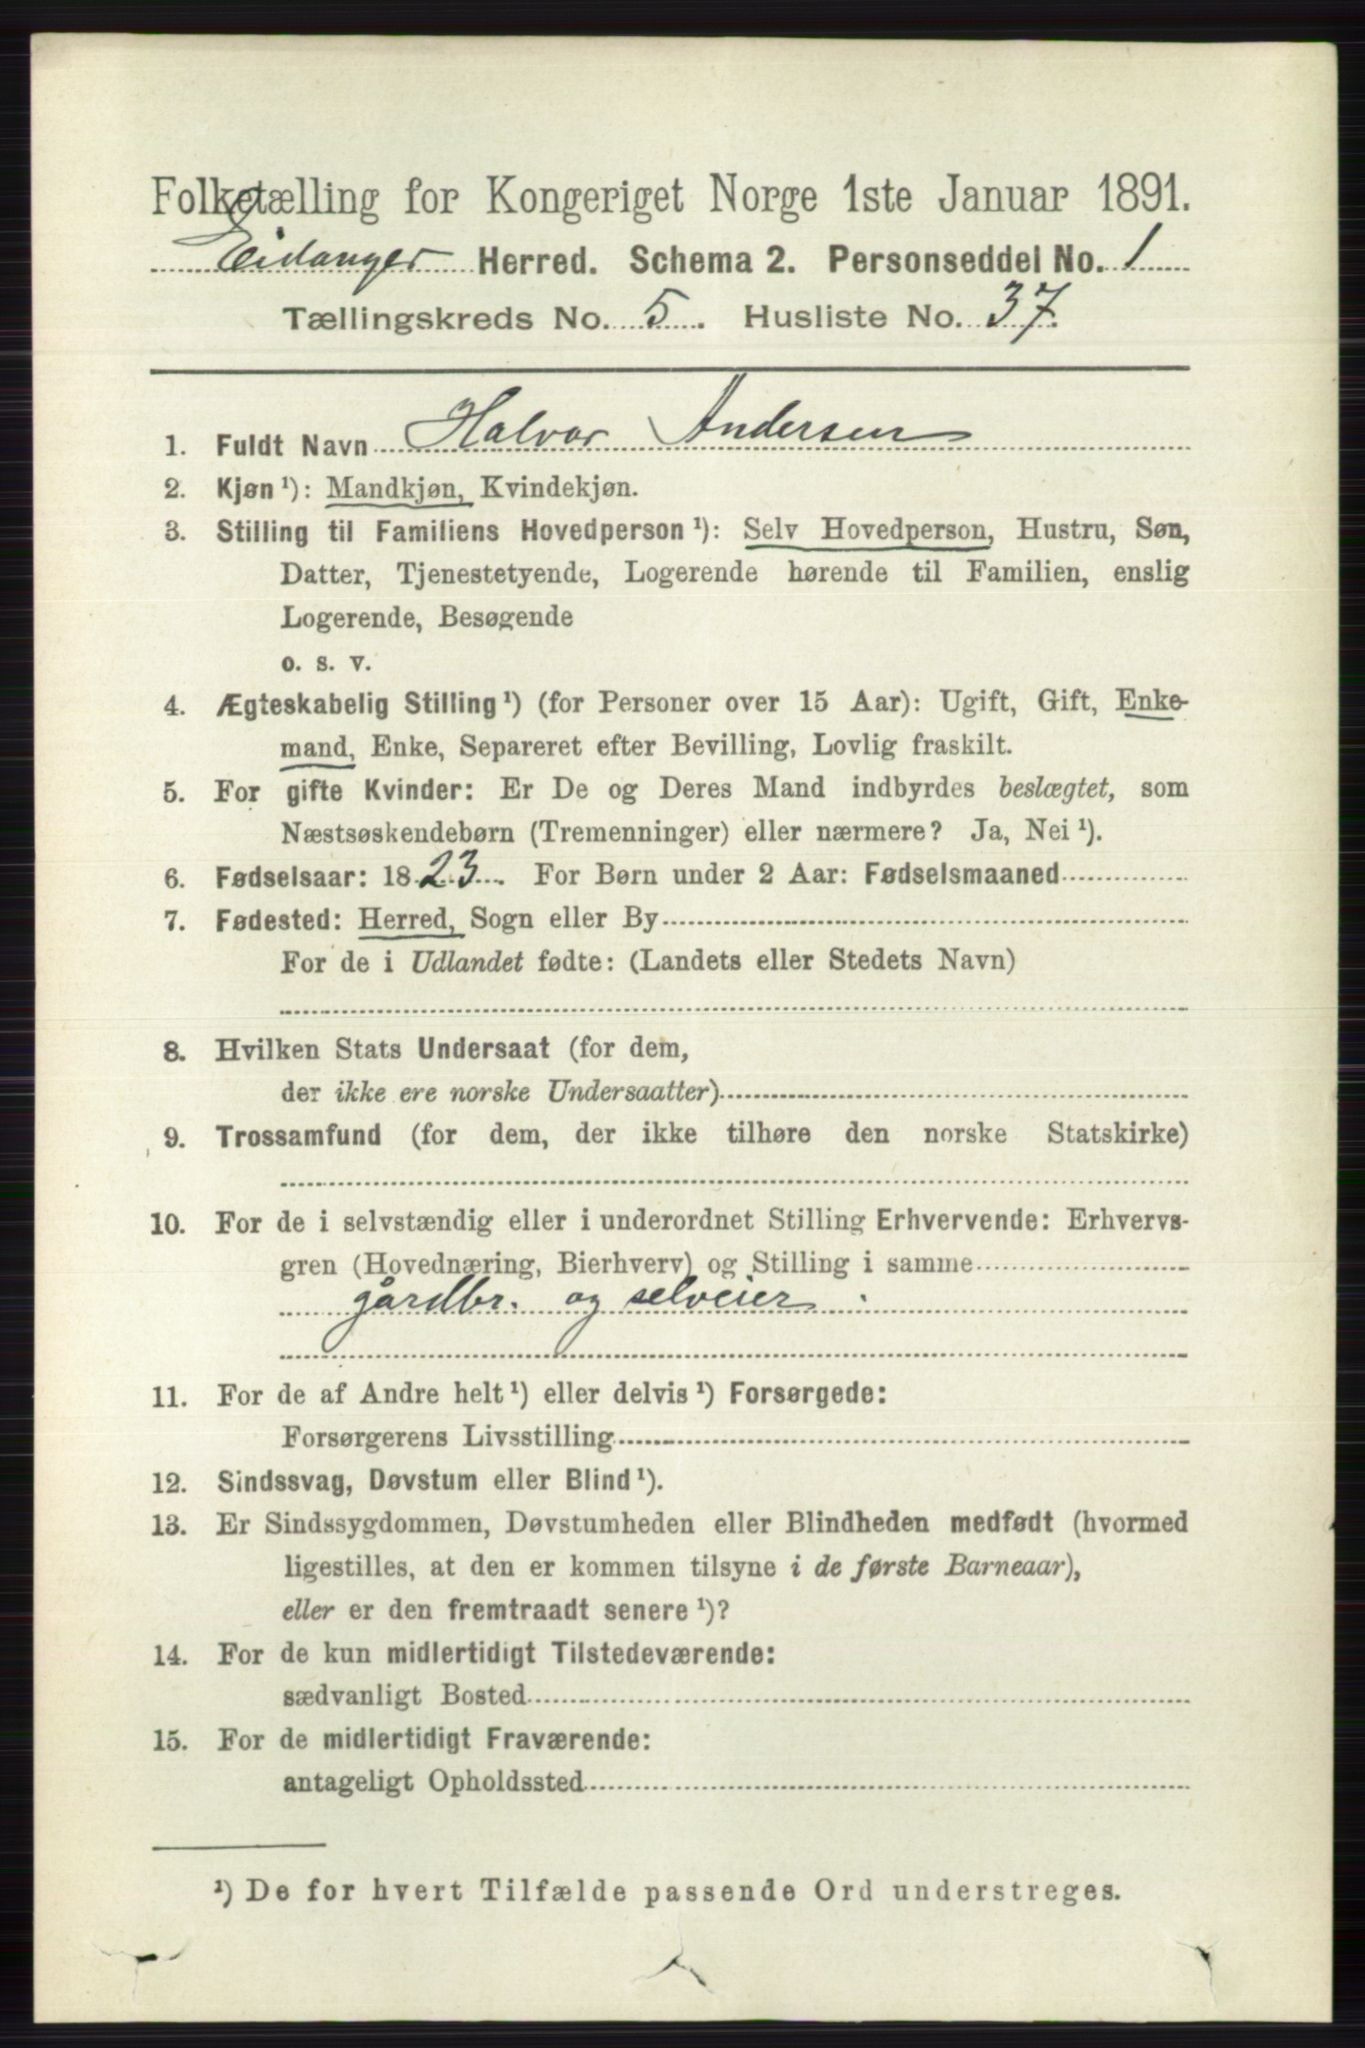 Folketælling for Kongeriget Norge 1ste Januar 1891.
Eidanger Herred. Schema 2. Personseddel No. 1
Tællingskreds No. 5. Husliste No. 37.
1. Fuldt Navn Halvor Andersen
2. Kjøn ¹): Mandkjøn, Kvindekjøn.
3. Stilling til Familiens Hovedperson ¹): Selv Hovedperson, Hustru, Søn,
Datter, Tjenestetyende, Logerende hørende til Familien, enslig
Logerende, Besøgende
o. s. v.
4. Ægteskabelig Stilling ¹) (for Personer over 15 Aar): Ugift, Gift, Enke-
mand, Enke, Separeret efter Bevilling, Lovlig fraskilt.
5. For gifte Kvinder: Er De og Deres Mand indbyrdes beslægtet, som
Næstsøskendebørn (Tremenninger) eller nærmere? Ja, Nei ¹).
6. Fødselsaar: 1823. For Børn under 2 Aar: Fødselsmaaned
7. Fødested: Herred, Sogn eller By
For de i Udlandet fødte: (Landets eller Stedets Navn)
8. Hvilken Stats Undersaat (for dem,
der ikke ere norske Undersaatter)
9. Trossamfund (for dem, der ikke tilhøre den norske Statskirke)
10. For de i selvstændig eller i underordnet Stilling Erhvervende: Erhvervs-
gren (Hovednæring, Bierhverv) og Stilling i samme
gårdbr. og selveier.
11. For de af Andre helt ¹) eller delvis ¹) Forsørgede:
Forsørgerens Livsstilling
12. Sindssvag, Døvstum eller Blind ¹).
13. Er Sindssygdommen, Døvstumheden eller Blindheden medfødt (hvormed
ligestilles, at den er kommen tilsyne i de første Barneaar),
eller er den fremtraadt senere ¹)?
14. For de kun midlertidigt Tilstedeværende:
sædvanligt Bosted
15. For de midlertidigt Fraværende:
antageligt Opholdssted
¹) De for hvert Tilfælde passende Ord understreges.